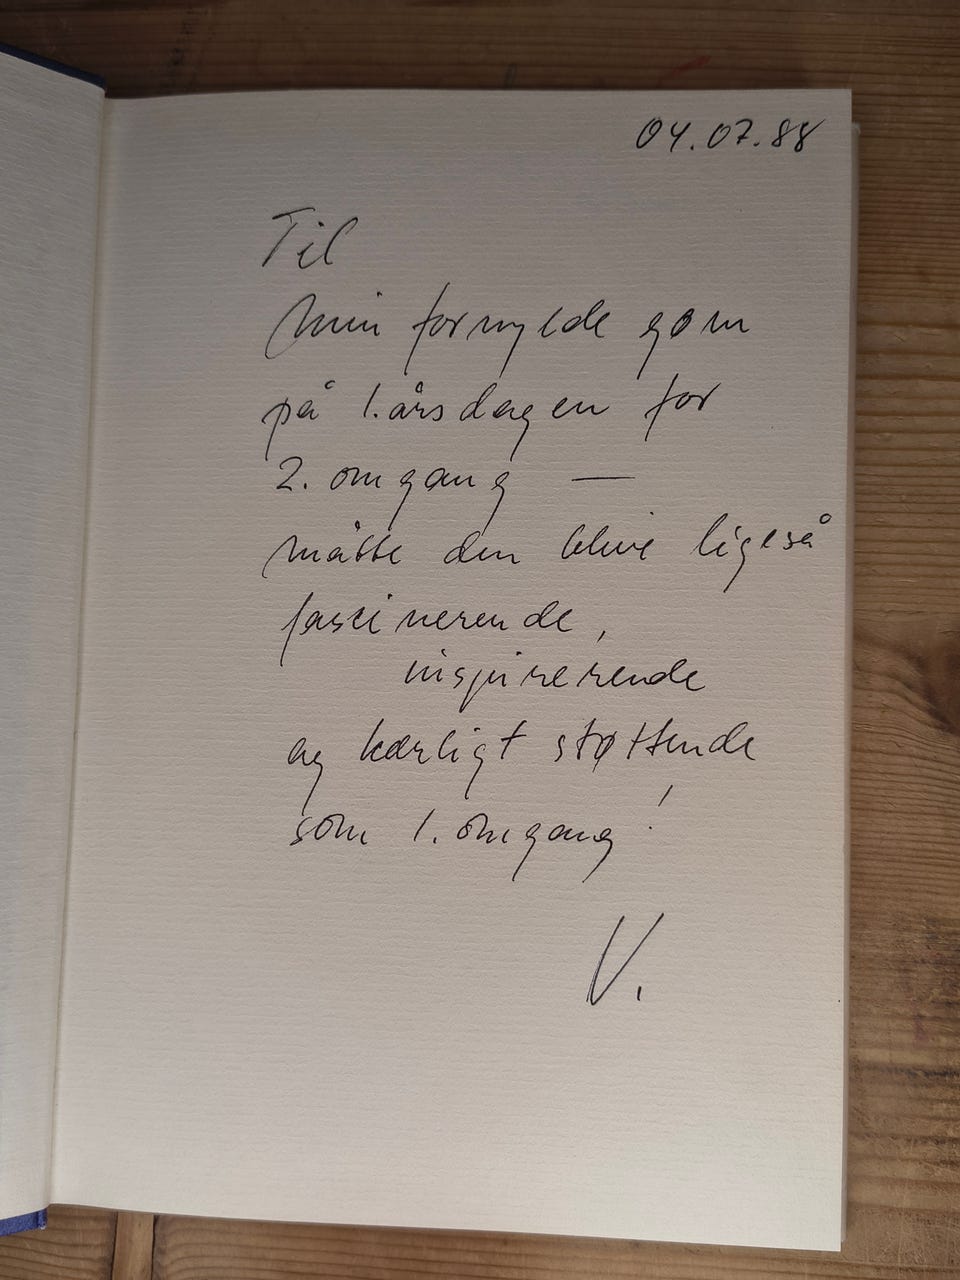 04.07.88
Til
min fornyede gom
på 1. årsdagen for
2. omgang —
måtte den blive ligeså
fascinerende,
inspirerende
og kærligt støttende
som 1. omgang!
V.